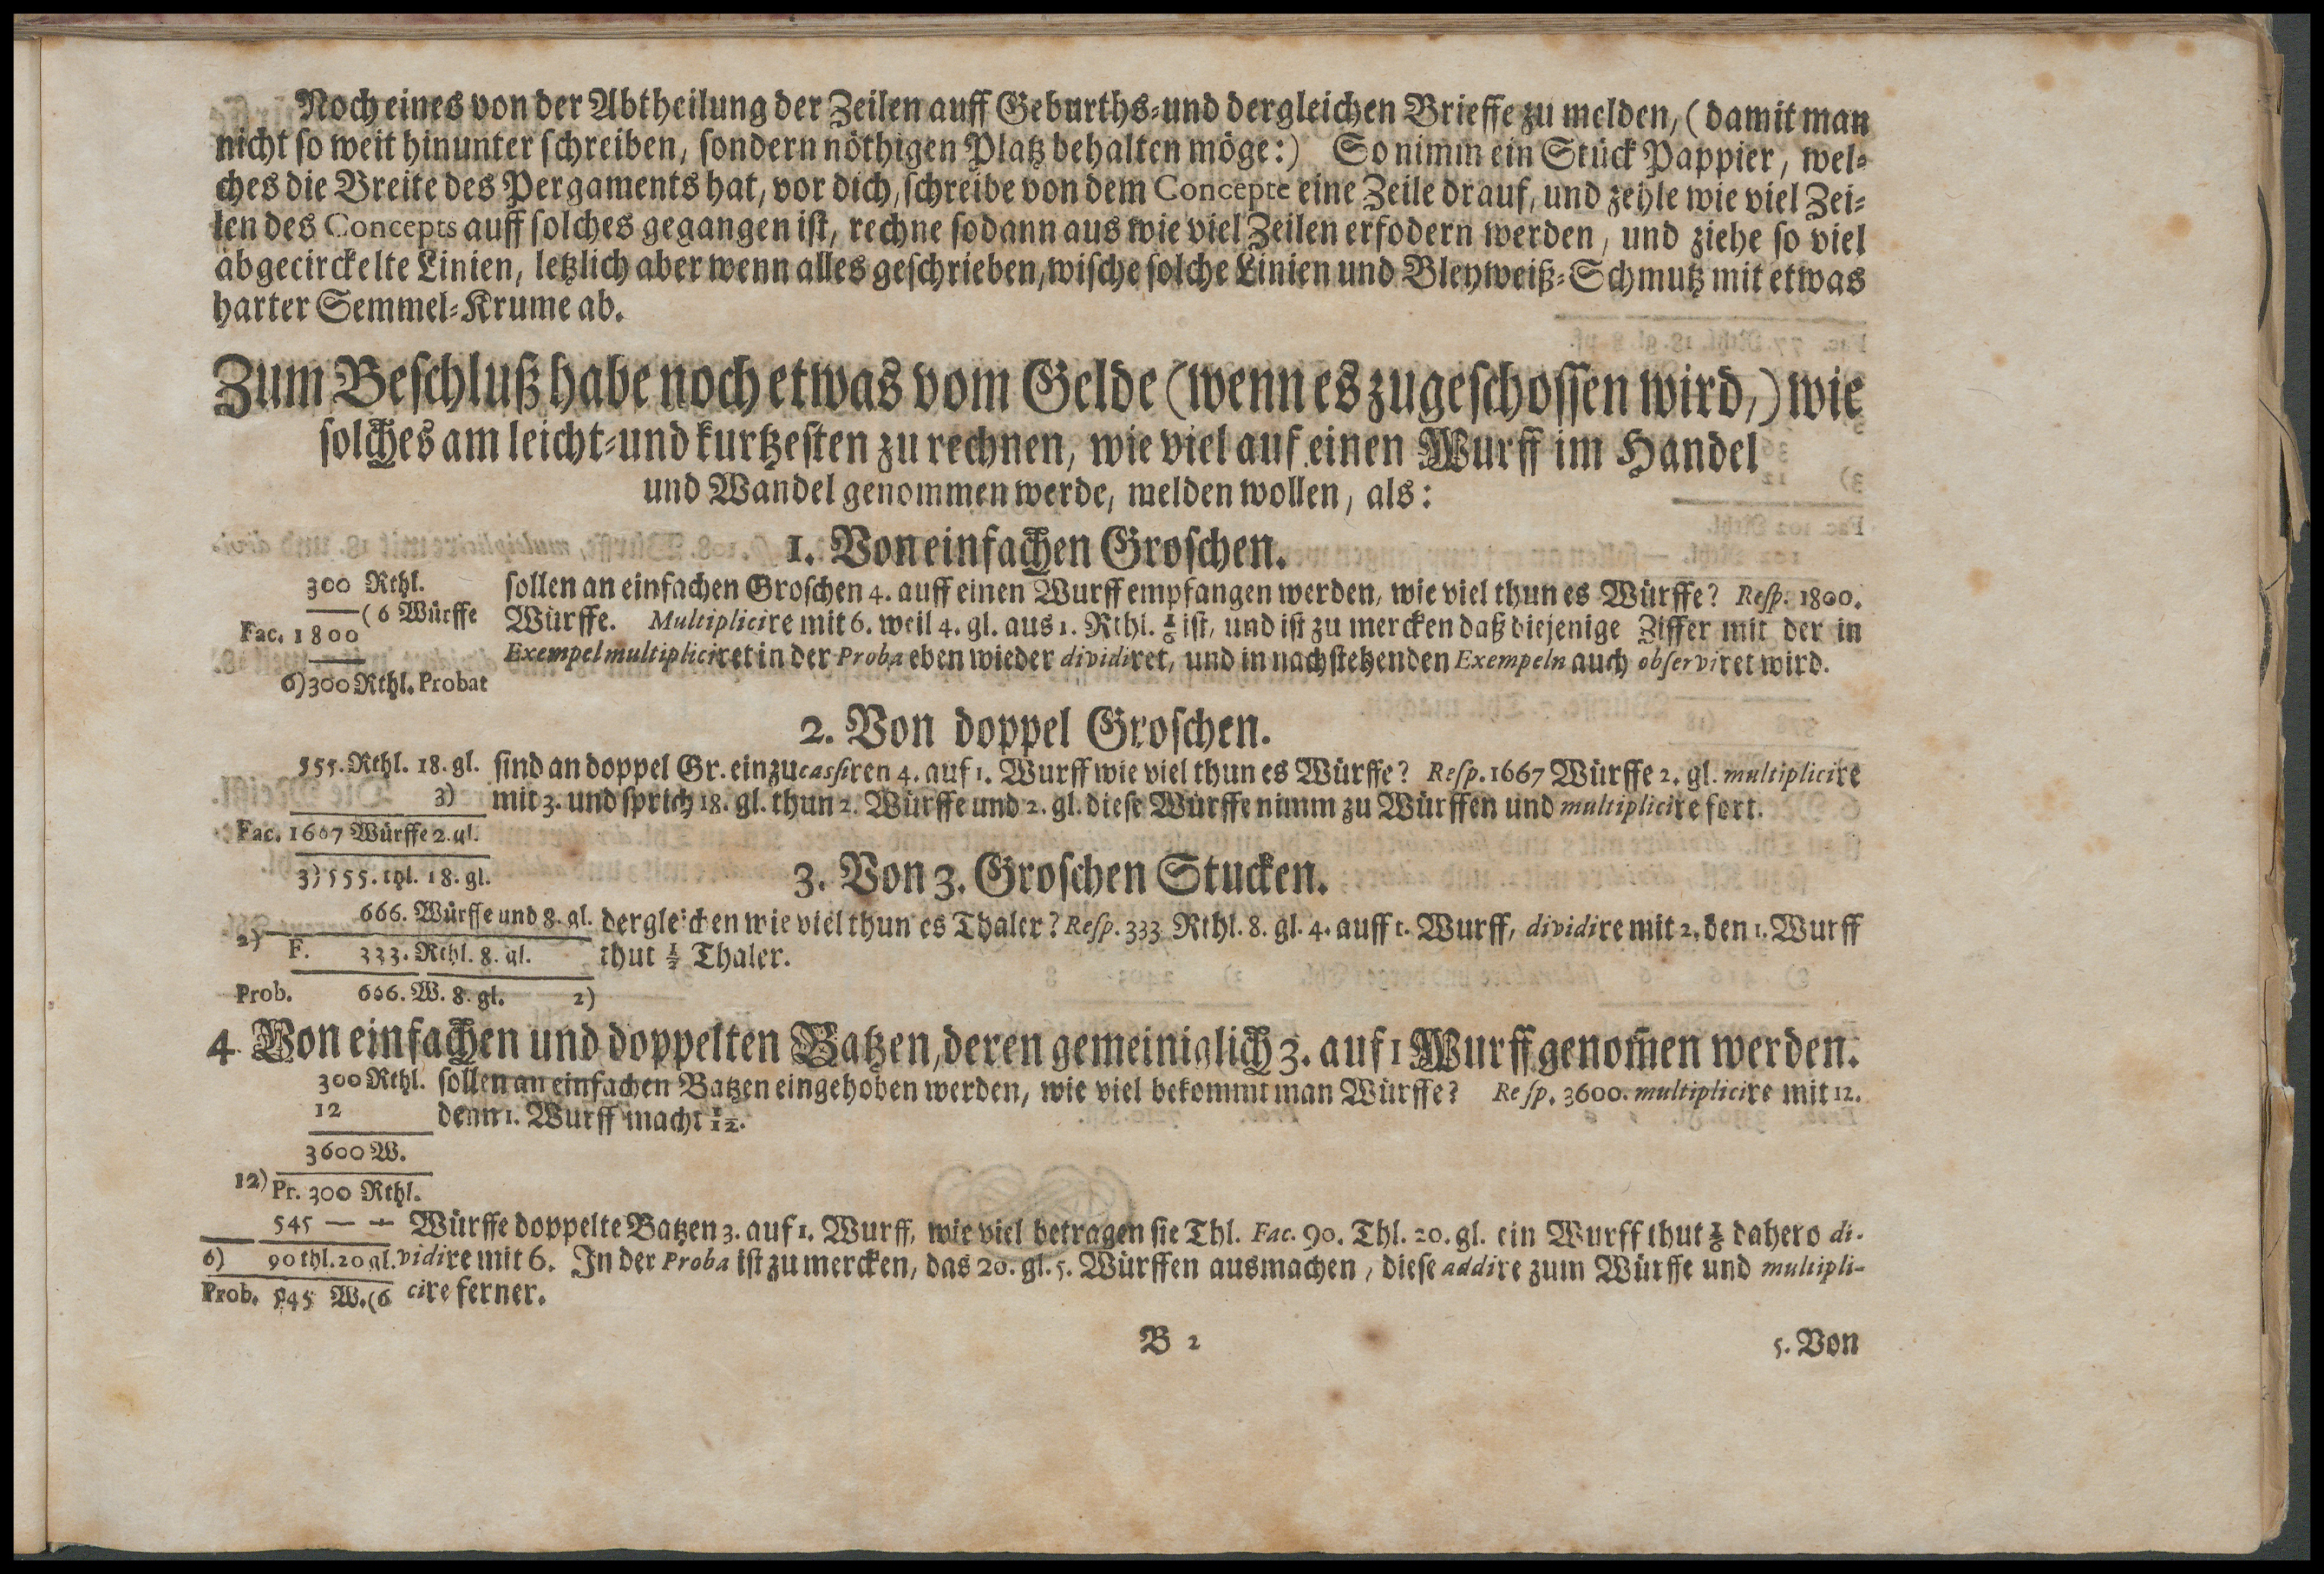 Noch eines von der Abtheilung der Zeilen auff Geburths-und dergleichen Brieffe zu melden, (damit man
nicht so weit hinunter schreiben, sondern nöthigen Platz behalten möge:) So nimm ein Stück Pappier, wel-
ches die Breite des Pergaments hat, vor dich, schreibe von dem Concepte eine Zeile drauf, und zehle wie viel Zei-
len des Concepts auff solches gegangen ist, rechne sodann aus wie viel Zeilen erfodern werden, und ziehe so viel
abgecirckelte Linien, letzlich aber wenn alles geschrieben, wische solche Linien und Bleyweiß-Schmutz mit etwas
harter Semmel-Krume ab.
Zum Beschluß habe noch etwas vom Gelde (wenn es zugeschossen wird,) wie
solches am leicht-und kurtzesten zu rechnen, wie viel auf einen Wurff im Handel
und Wandel genommen werde, melden wollen, als:
1. Von einfachen Groschen.
300 Rthl. sollen an einfachen Groschen 4. auff einen Wurff empfangen werden, wie viel thun es Würffe? Resp. 1800.
(6 Würffe Würffe. Multiplicire mit 6. weil 4. gl. aus 1. Rthl. 1/6 ist, und ist zu mercken daß diejenige Ziffer mit der in
Fac. 1800
Exempel multipliciret in der Proba eben wieder dividiret, und in nachstehenden Exempeln auch observiret wird.
6) 300 Rthl. Probat
2. Von doppel Groschen.
555. Rthl. 18. gl. sind an doppel Gr. einzucassiren 4. auf 1. Wurff wie viel thun es Würffe? Resp. 1667 Würffe 2. gl. multiplicire
3) mit 3. und sprich 18. gl. thun 2. Würffe und 2. gl. diese Würffe nimm zu Würffen und multiplicire fort.
Fac. 1667 Würffe 2. gl.
3) 555. thl. 18. gl.
3. Von 3. Groschen Stucken.
666. Würffe und 8. gl. dergleichen wie viel thun es Thaler? Resp. 333 Rthl. 8. gl. 4. auff 1. Wurff, dividire mit 2. den 1. Wurff
2) F. 333. Rthl. 8. gl. thut 1/2 Thaler.
Prob. 666. W. 8. gl. 2)
4. Von einfachen und doppelten Batzen, deren gemeiniglich 3. auf 1 Wurff genom̃en werden.
300 Rthl. sollen an einfachen Batzen eingehoben werden, wie viel bekommt man Würffe? Resp. 3600. multiplicire mit 12.
12 denn 1. Wurff macht 1/12.
3600 W.
12) Pr. 300 Rthl.
545 — — Würffe doppelte Batzen 3. auf 1. Wurff, wie viel betragen sie Thl. Fac. 90. Thl. 20. gl. ein Wurff thut 1/6 dahero di-
6) 90 thl. 20 gl. vidire mit 6. In der Proba ist zu mercken, das 20. gl. 5. Würffen ausmachen, diese addire zum Würffe und multipli-
Prob. 545 W. (6 cire ferner.
B 2
5. Von